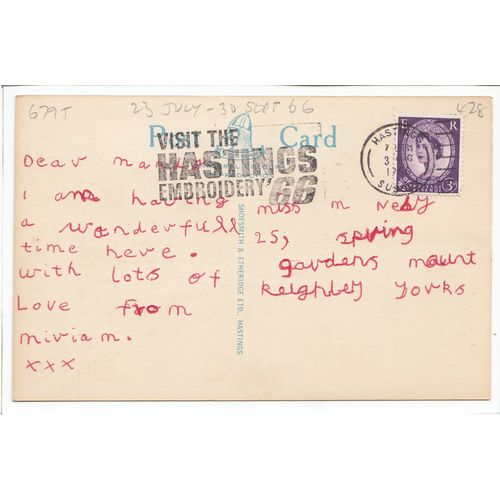 679T
23 JULY - 30 SEPT 66
428
Post Card
VISIT THE
HASTINGS
EMBROIDERY' 66
HASTINGS
SUSSEX
E R
3D
Dear
I am having
a wonderfull
time here.
with lots of
Love from
miriam.
xxx
miss m
25, spring
gardens mount
Keighley Yorks
SHOESMITH & ETHERIDGE LTD., HASTINGS